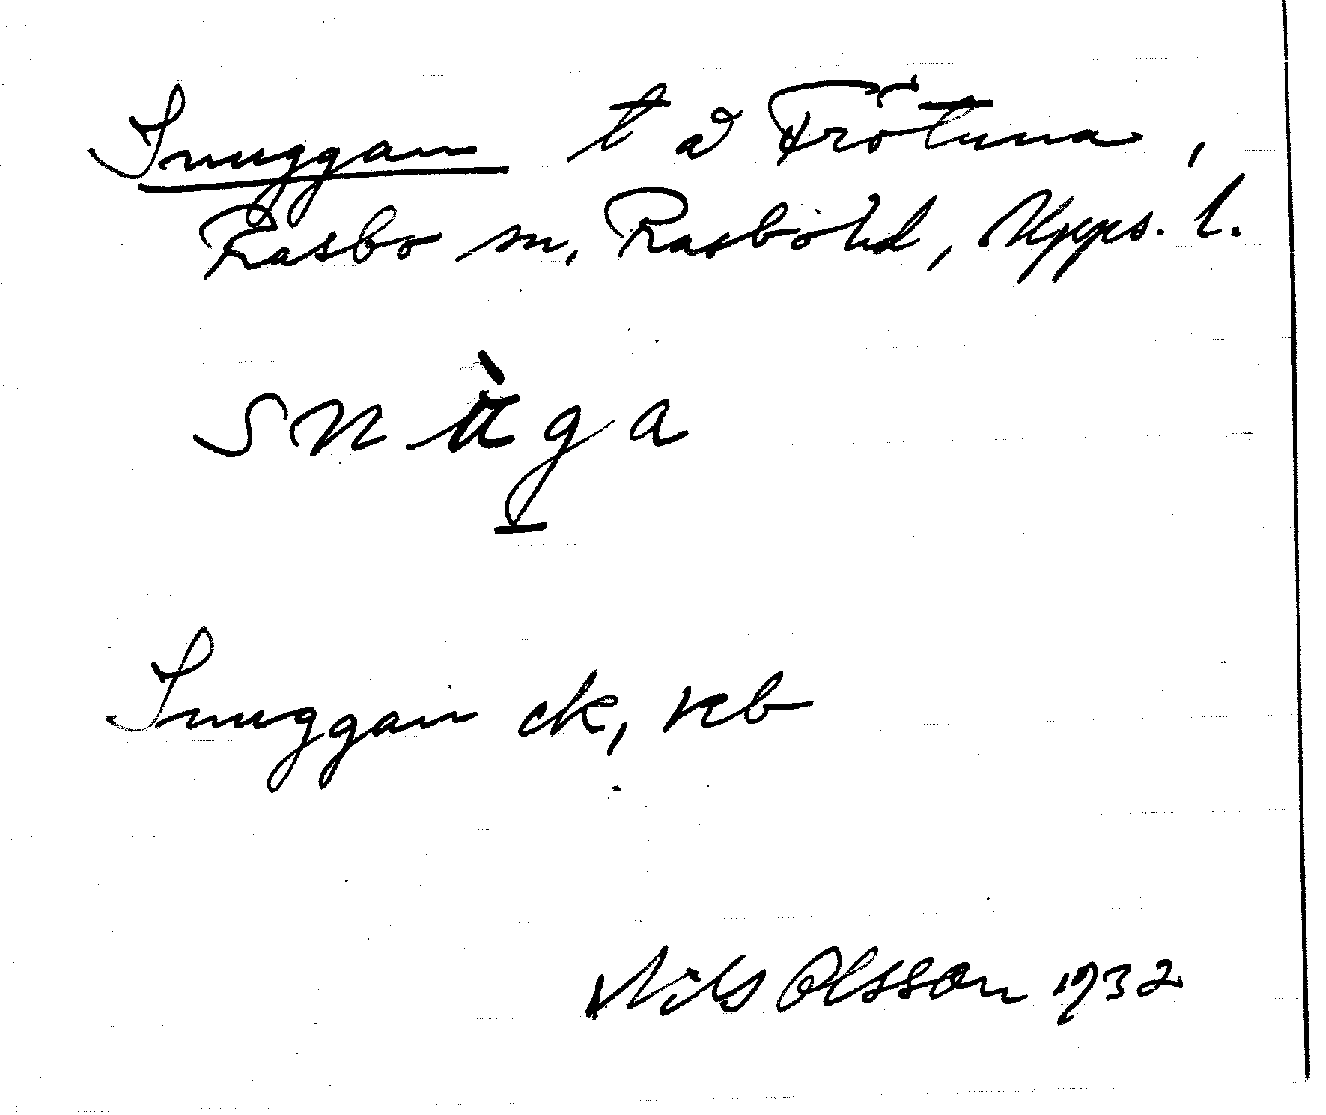 Snuggan t å Frötuna,
Rasbo sn, Rasbo hd, Upps. l.
snùga
Snuggan ek, kb
Nils Olsson 1932